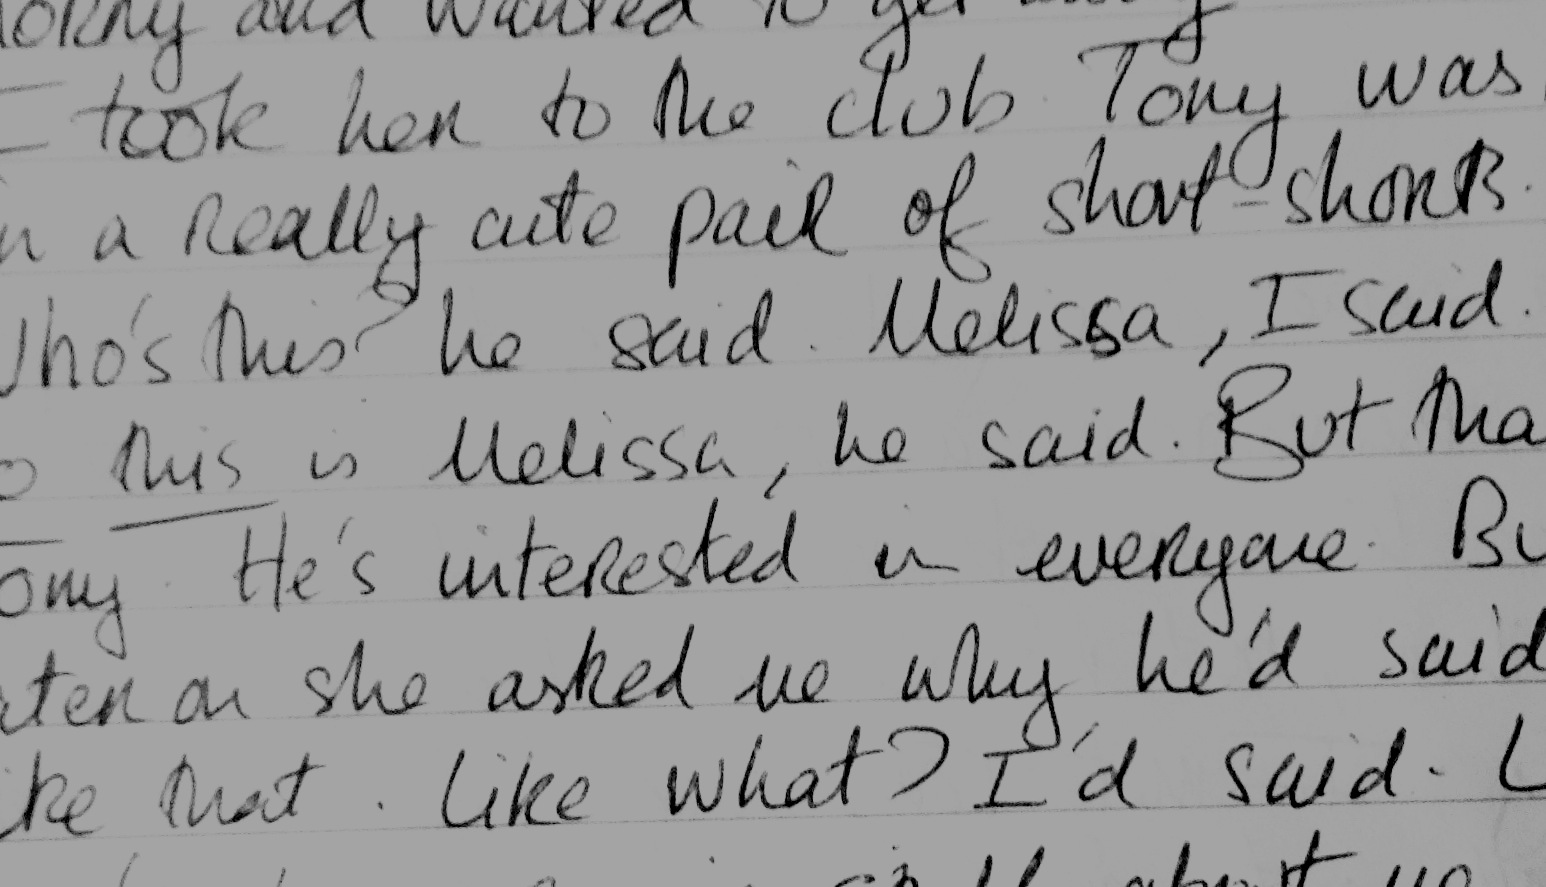 and wanted to get
I took her to the club. Tony was
in a really cute pair of short-shorts.
Who's this? he said. Melissa, I said.
so this is Melissa, he said. But tha
Tony. He's interested in everyone. Bu
ater on she asked me why he'd said
ike that. Like what? I'd said. L
about